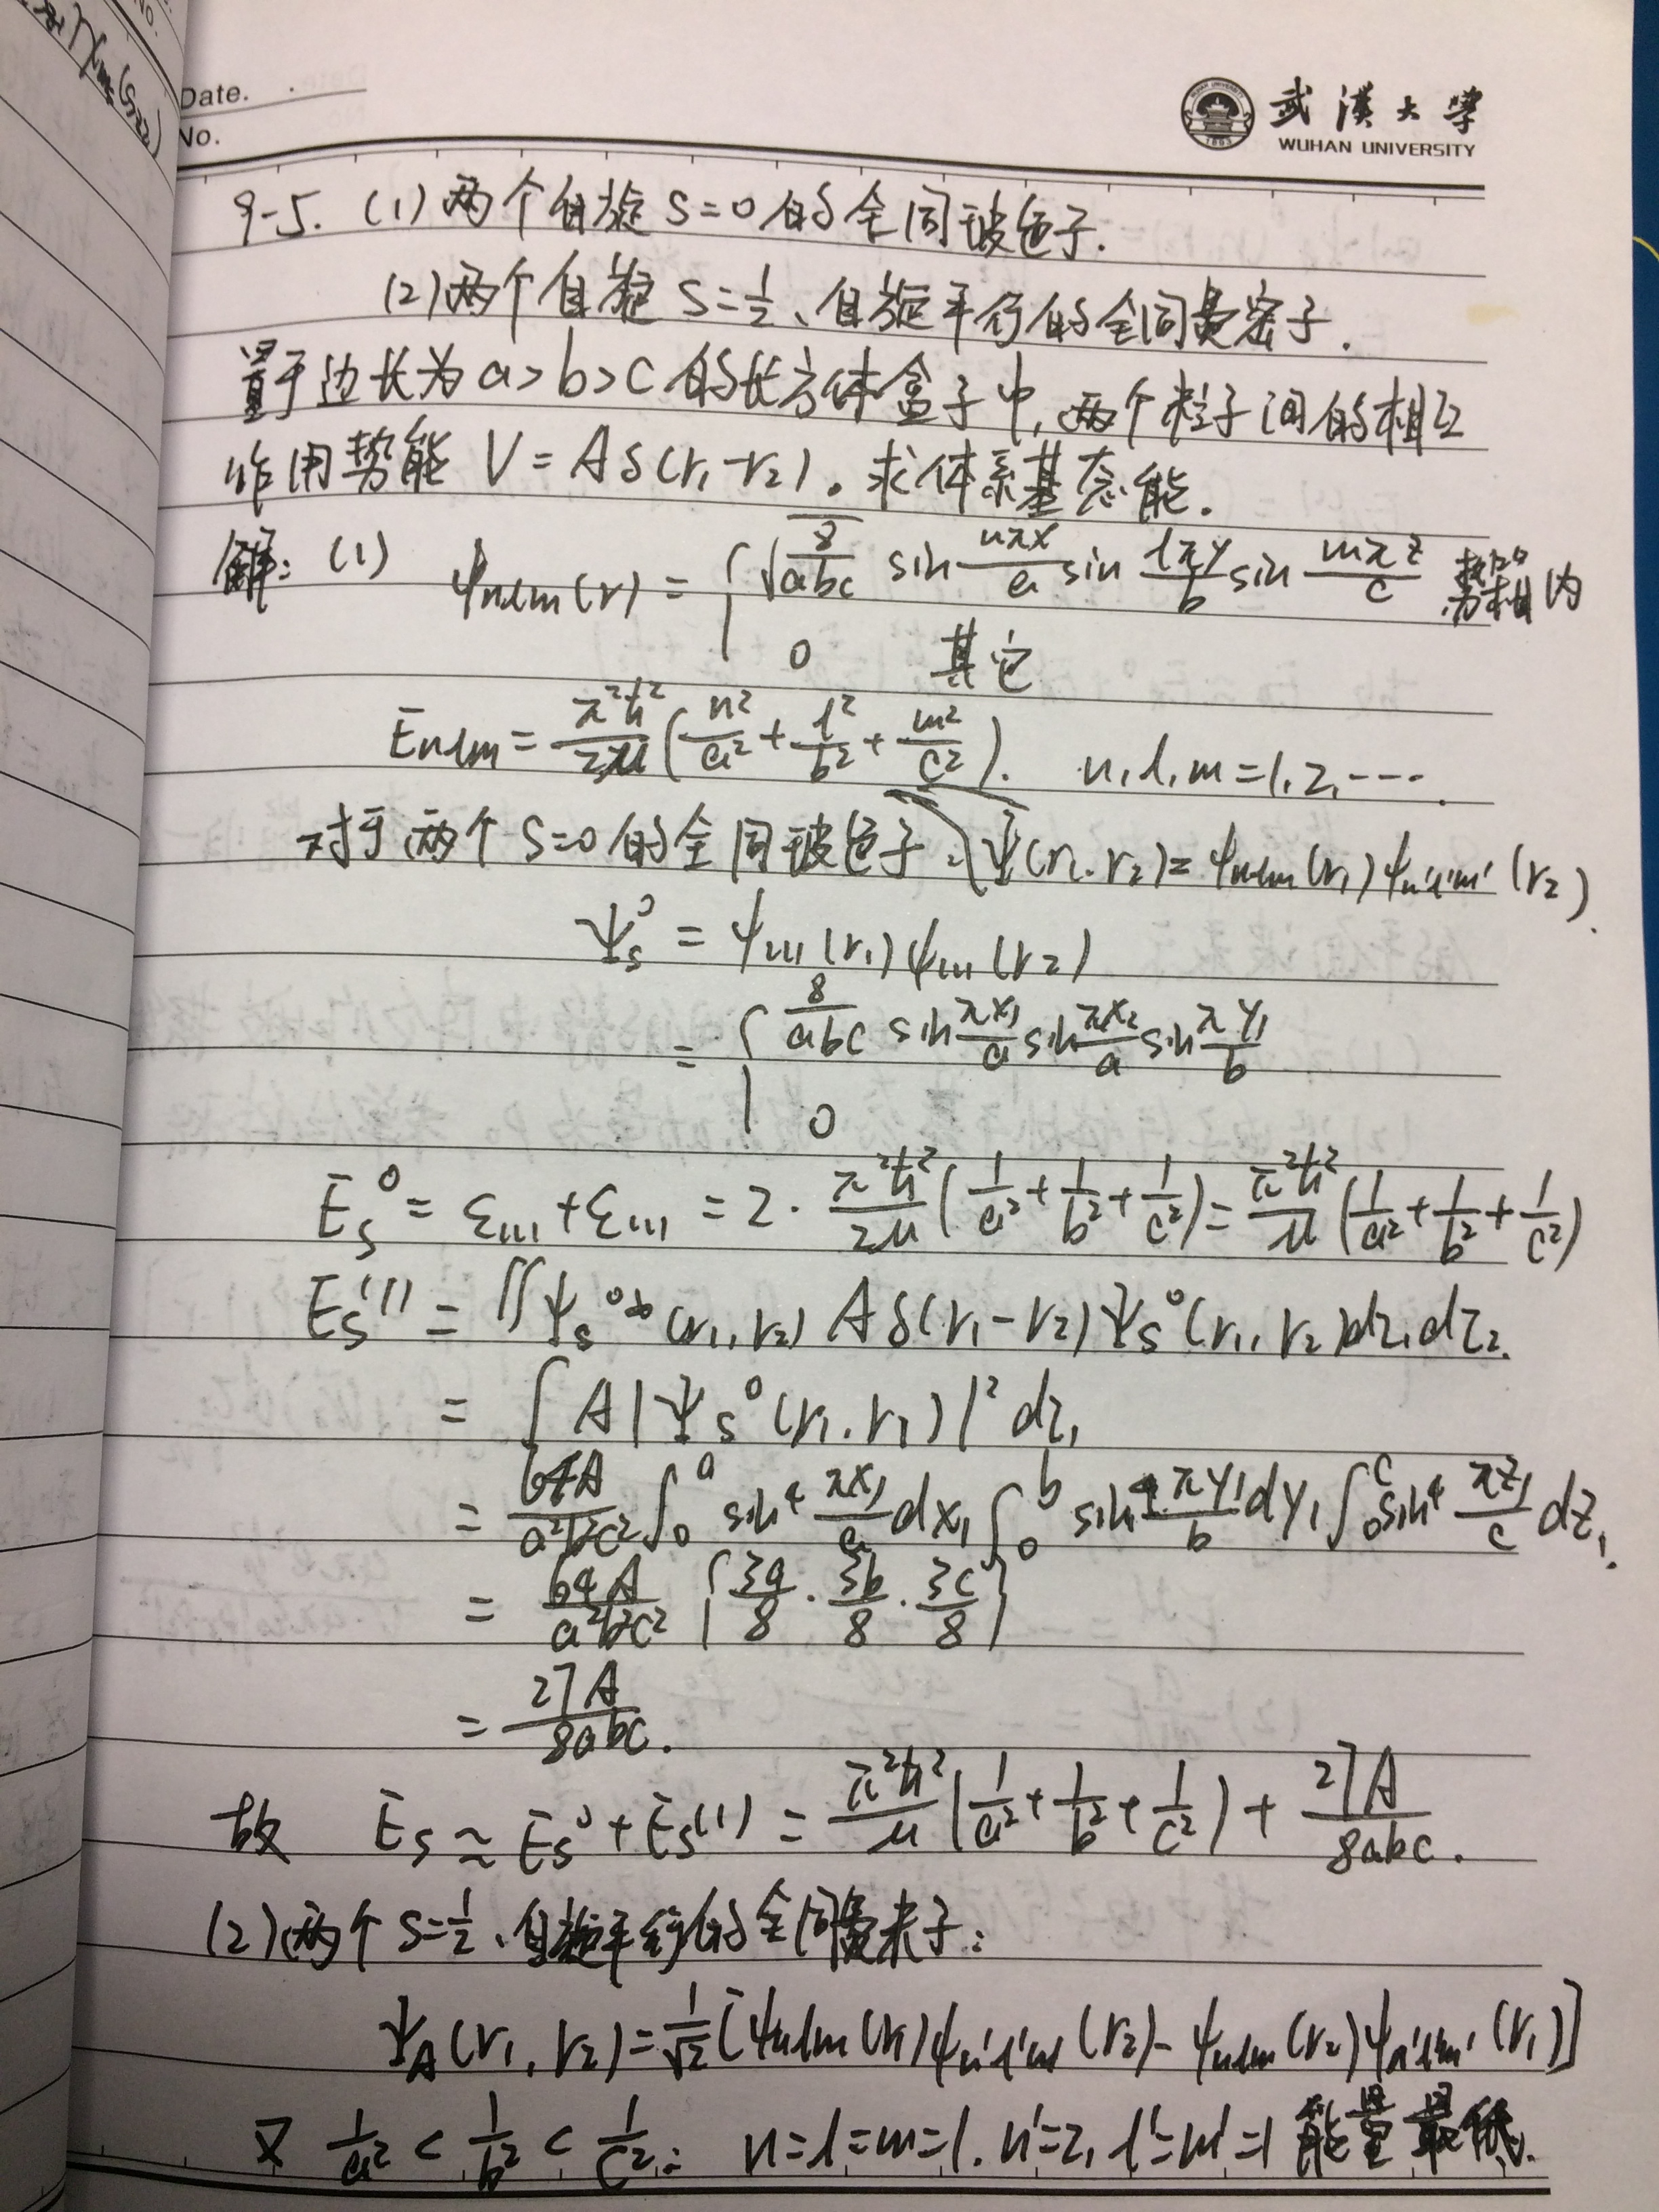 Date.
No.
武漢大学
WUHAN UNIVERSITY
1893
9-5. (1) 两个自旋 S=0 的全同玻色子.
(2) 两个自旋 S=1/2、自旋平行的全同费密子.
置于边长为 a>b>c 的长方体盒子中, 两个粒子间的相互
作用势能 V = Aδ(r₁-r₂)。求体系基态能.
解: (1) ψnlm(r) = { √(8/abc) sin nπx/a sin lπy/b sin mπz/c 势箱内
0 其它
Enlm = π²ħ²/2μ (n²/a² + l²/b² + m²/c²). n, l, m = 1, 2, ---.
对于两个 S=0 的全同玻色子, Ψ(r₁, r₂) = ψnlm(r₁) ψn'l'm'(r₂).
Ψs⁰ = ψ₁₁₁(r₁) ψ₁₁₁(r₂)
= { 8/abc sin πx₁/a sin πx₂/a sin πy₁/b
0
Es⁰ = ε₁₁₁ + ε₁₁₁ = 2 · π²ħ²/2μ (1/a² + 1/b² + 1/c²) = π²ħ²/μ (1/a² + 1/b² + 1/c²)
Es⁽¹⁾ = ∬ Ψs⁰*(r₁, r₂) Aδ(r₁-r₂) Ψs⁰(r₁, r₂) dτ₁dτ₂.
= ∫ A|Ψs⁰(r₁, r₁)|² dτ₁
= 64A/a²b²c² ∫₀ᵃ sin⁴ πx₁/a dx₁ ∫₀ᵇ sin⁴ πy₁/b dy₁ ∫₀ᶜ sin⁴ πz₁/c dz₁.
= 64A/a²b²c² { 3a/8 · 3b/8 · 3c/8 }
= 27A/8abc.
故 Es ≈ Es⁰ + Es⁽¹⁾ = π²ħ²/μ (1/a² + 1/b² + 1/c²) + 27A/8abc.
(2) 两个 S=1/2、自旋平行的全同费米子:
ΨA(r₁, r₂) = 1/√2 [ψnlm(r₁) ψn'l'm'(r₂) - ψnlm(r₂) ψn'l'm'(r₁)]
又 1/a² < 1/b² < 1/c²: n=l=m=1. n'=2, l'=m'=1 能量最低.